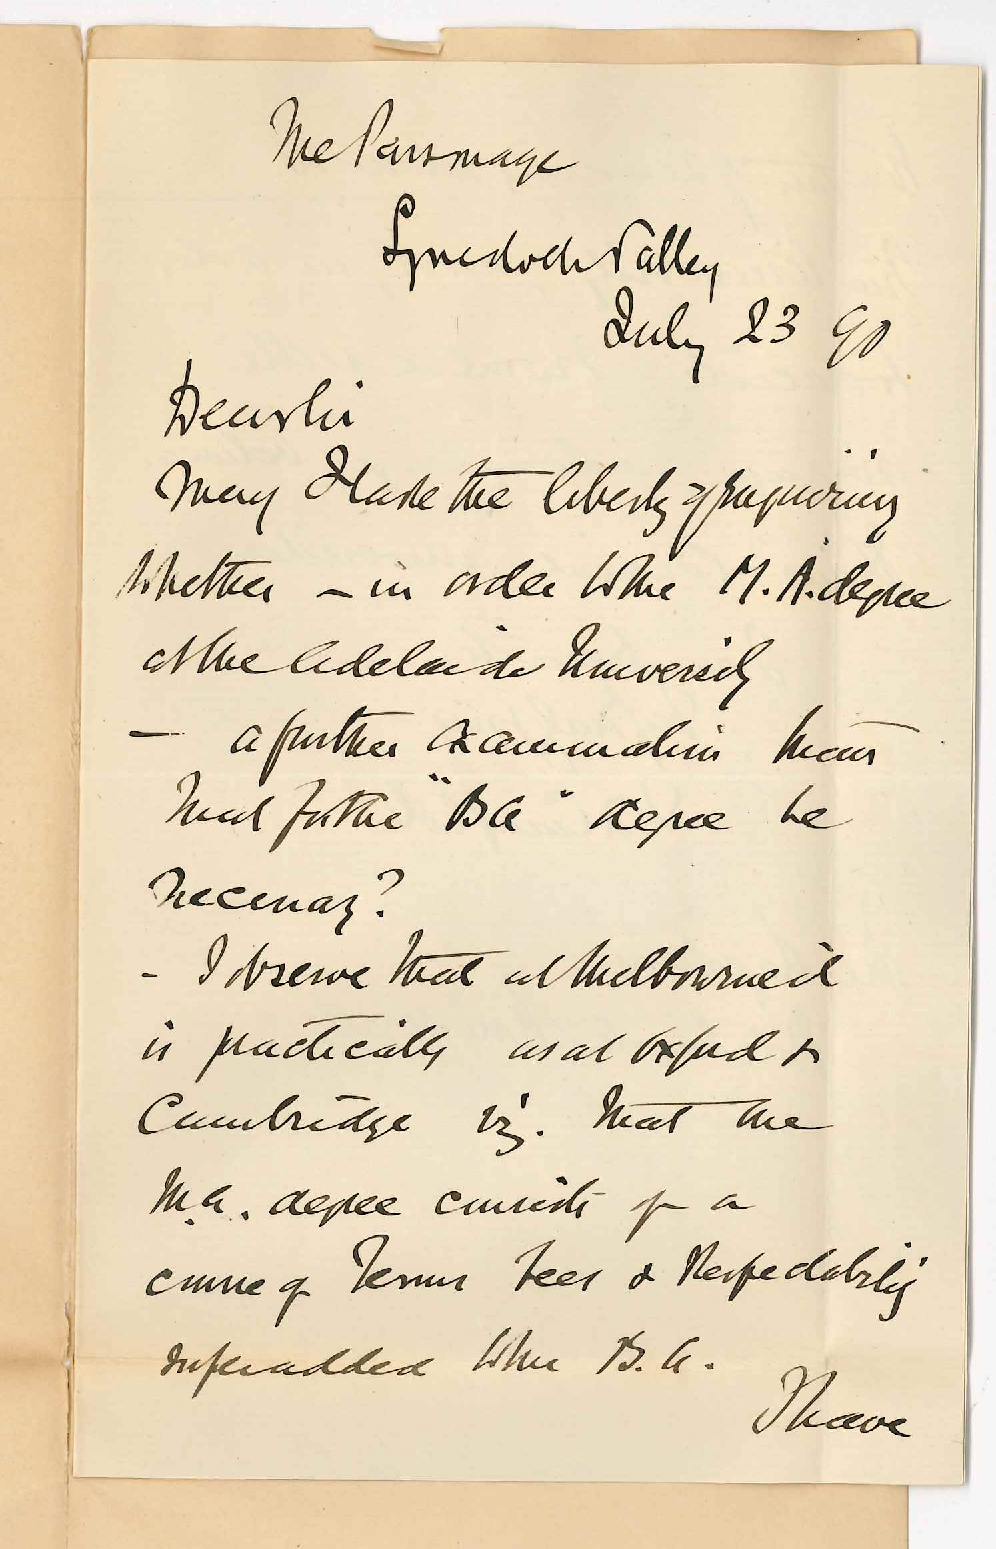 The Parsonage
Lyndoch Valley
July 23 90
Dear Sir
May I take the liberty of enquiring
whether – in order to the M.A. degree
at the Adelaide University
– a further examination than
that for the "BA" degree be
necessary?
- I observe that at Melbourne it
is practically as at Oxford &
Cambridge viz. that the
M.A. degree consists of a
course of Terms Fees & Respectability
superadded to the B.A.
I have